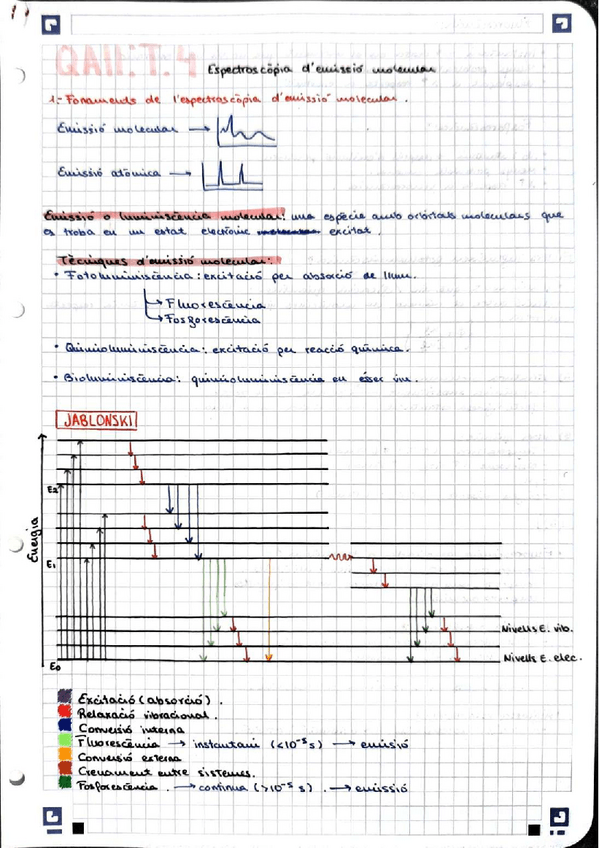 QAII: T.4
Espectroscòpia d'emissió molecular
1.- Fonaments de l'espectroscòpia d'emissió molecular.
Emissió molecular →
Emissió atòmica →
Emissió o luminiscència molecular: una espècie amb orbitals moleculars que
es troba en un estat electrònic excitat.
Tècniques d'emissió molecular:
• Fotoluminiscència: excitació per absorció de llum.
→ Fluorescència
→ Fosforescència
• Quimioluminiscència: excitació per reacció química.
• Bioluminiscència: quimioluminiscència en ésser viu.
JABLONSKI
Energia
E2
E1
E0
Nivells E. vib.
Nivells E. elec.
Excitació (absorció).
Relaxació vibracional.
Conversió interna
Fluorescència → instantani (<10⁻⁵ s) → emissió
Conversió externa
Creuament entre sistemes.
Fosforescència. → continua (>10⁻⁵ s). → emissió